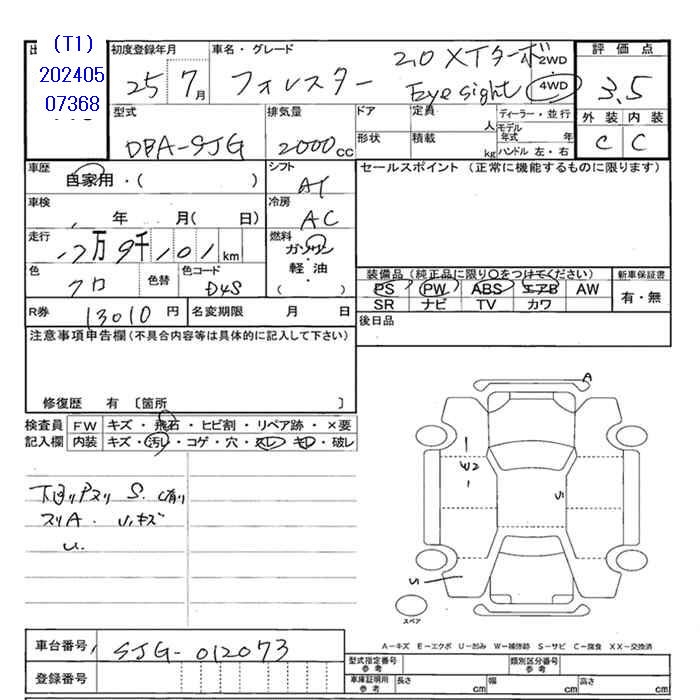 (T1)
202405
07368
初度登録年月
25 7月
車名・グレード
フォレスター
2.0 XTターボ
Eye sight
2WD
4WD
評価点
3.5
外装 内装
C C
型式
DBA-SJG
排気量
2000cc
ドア
定員
人
ディーラー・並行
モデル年式 年
形状
積載
kg
ハンドル 左・右
車歴
自家用・( )
シフト
AT
セールスポイント (正常に機能するものに限ります)
車検
年 月( 日)
冷房
AC
走行
万 9千 101km
燃料
ガソリン
軽・油
( )
色
クロ
色替
色コード
D4S
装備品 (純正品に限り○をつけてください)
新車保証書
PS PW ABS エアB AW
有・無
SR ナビ TV カワ
R券
13010円
名変期限 月 日
後日品
注意事項申告欄(不具合内容等は具体的に記入して下さい)
修復歴 有 〔箇所 〕
検査員記入欄
FW キズ・飛石・ヒビ割・リペア跡・×要
内装 キズ・汚レ・コゲ・穴・スレ・キレ・破レ
スリA. U.キズ
U.
A
W2
S
S
スペア
A-キズ E-エクボ U-凹み W-補修跡 S-サビ C-腐食 XX-交換済
車台番号
SJG-012073
登録番号
型式指定番号参考
類別区分番号参考
車庫証明用参考
長さ cm
幅 cm
高さ cm